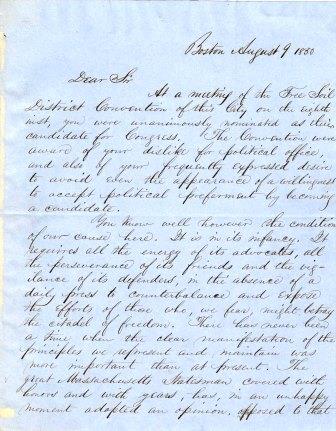 Boston August 9 1850
Dear Sir
At a meeting of the Free Soil
District Convention of this City on the eighth
inst, you were unanimously nominated as their
candidate for Congress. The Convention were
aware of your dislike for political office,
and also of your frequently expressed desire
to avoid even the appearance of a willingness
to accept political preferment by becoming
a candidate.
You know well however the condition
of our cause here. It is in its infancy. It
requires all the energy of its advocates, all
the perseverance of its friends and the vig-
ilance of its defenders, in the absence of a
daily press to counterbalance and expose
the efforts of those who, we fear, might betray
the citadel of freedom. There has never been
a time when the clear manifestation of the
principles we represent and maintain was
more important than at present. The
great Massachusetts Statesman covered with
honors and with years, has, in an unhappy
moment adopted an opinion, opposed to that